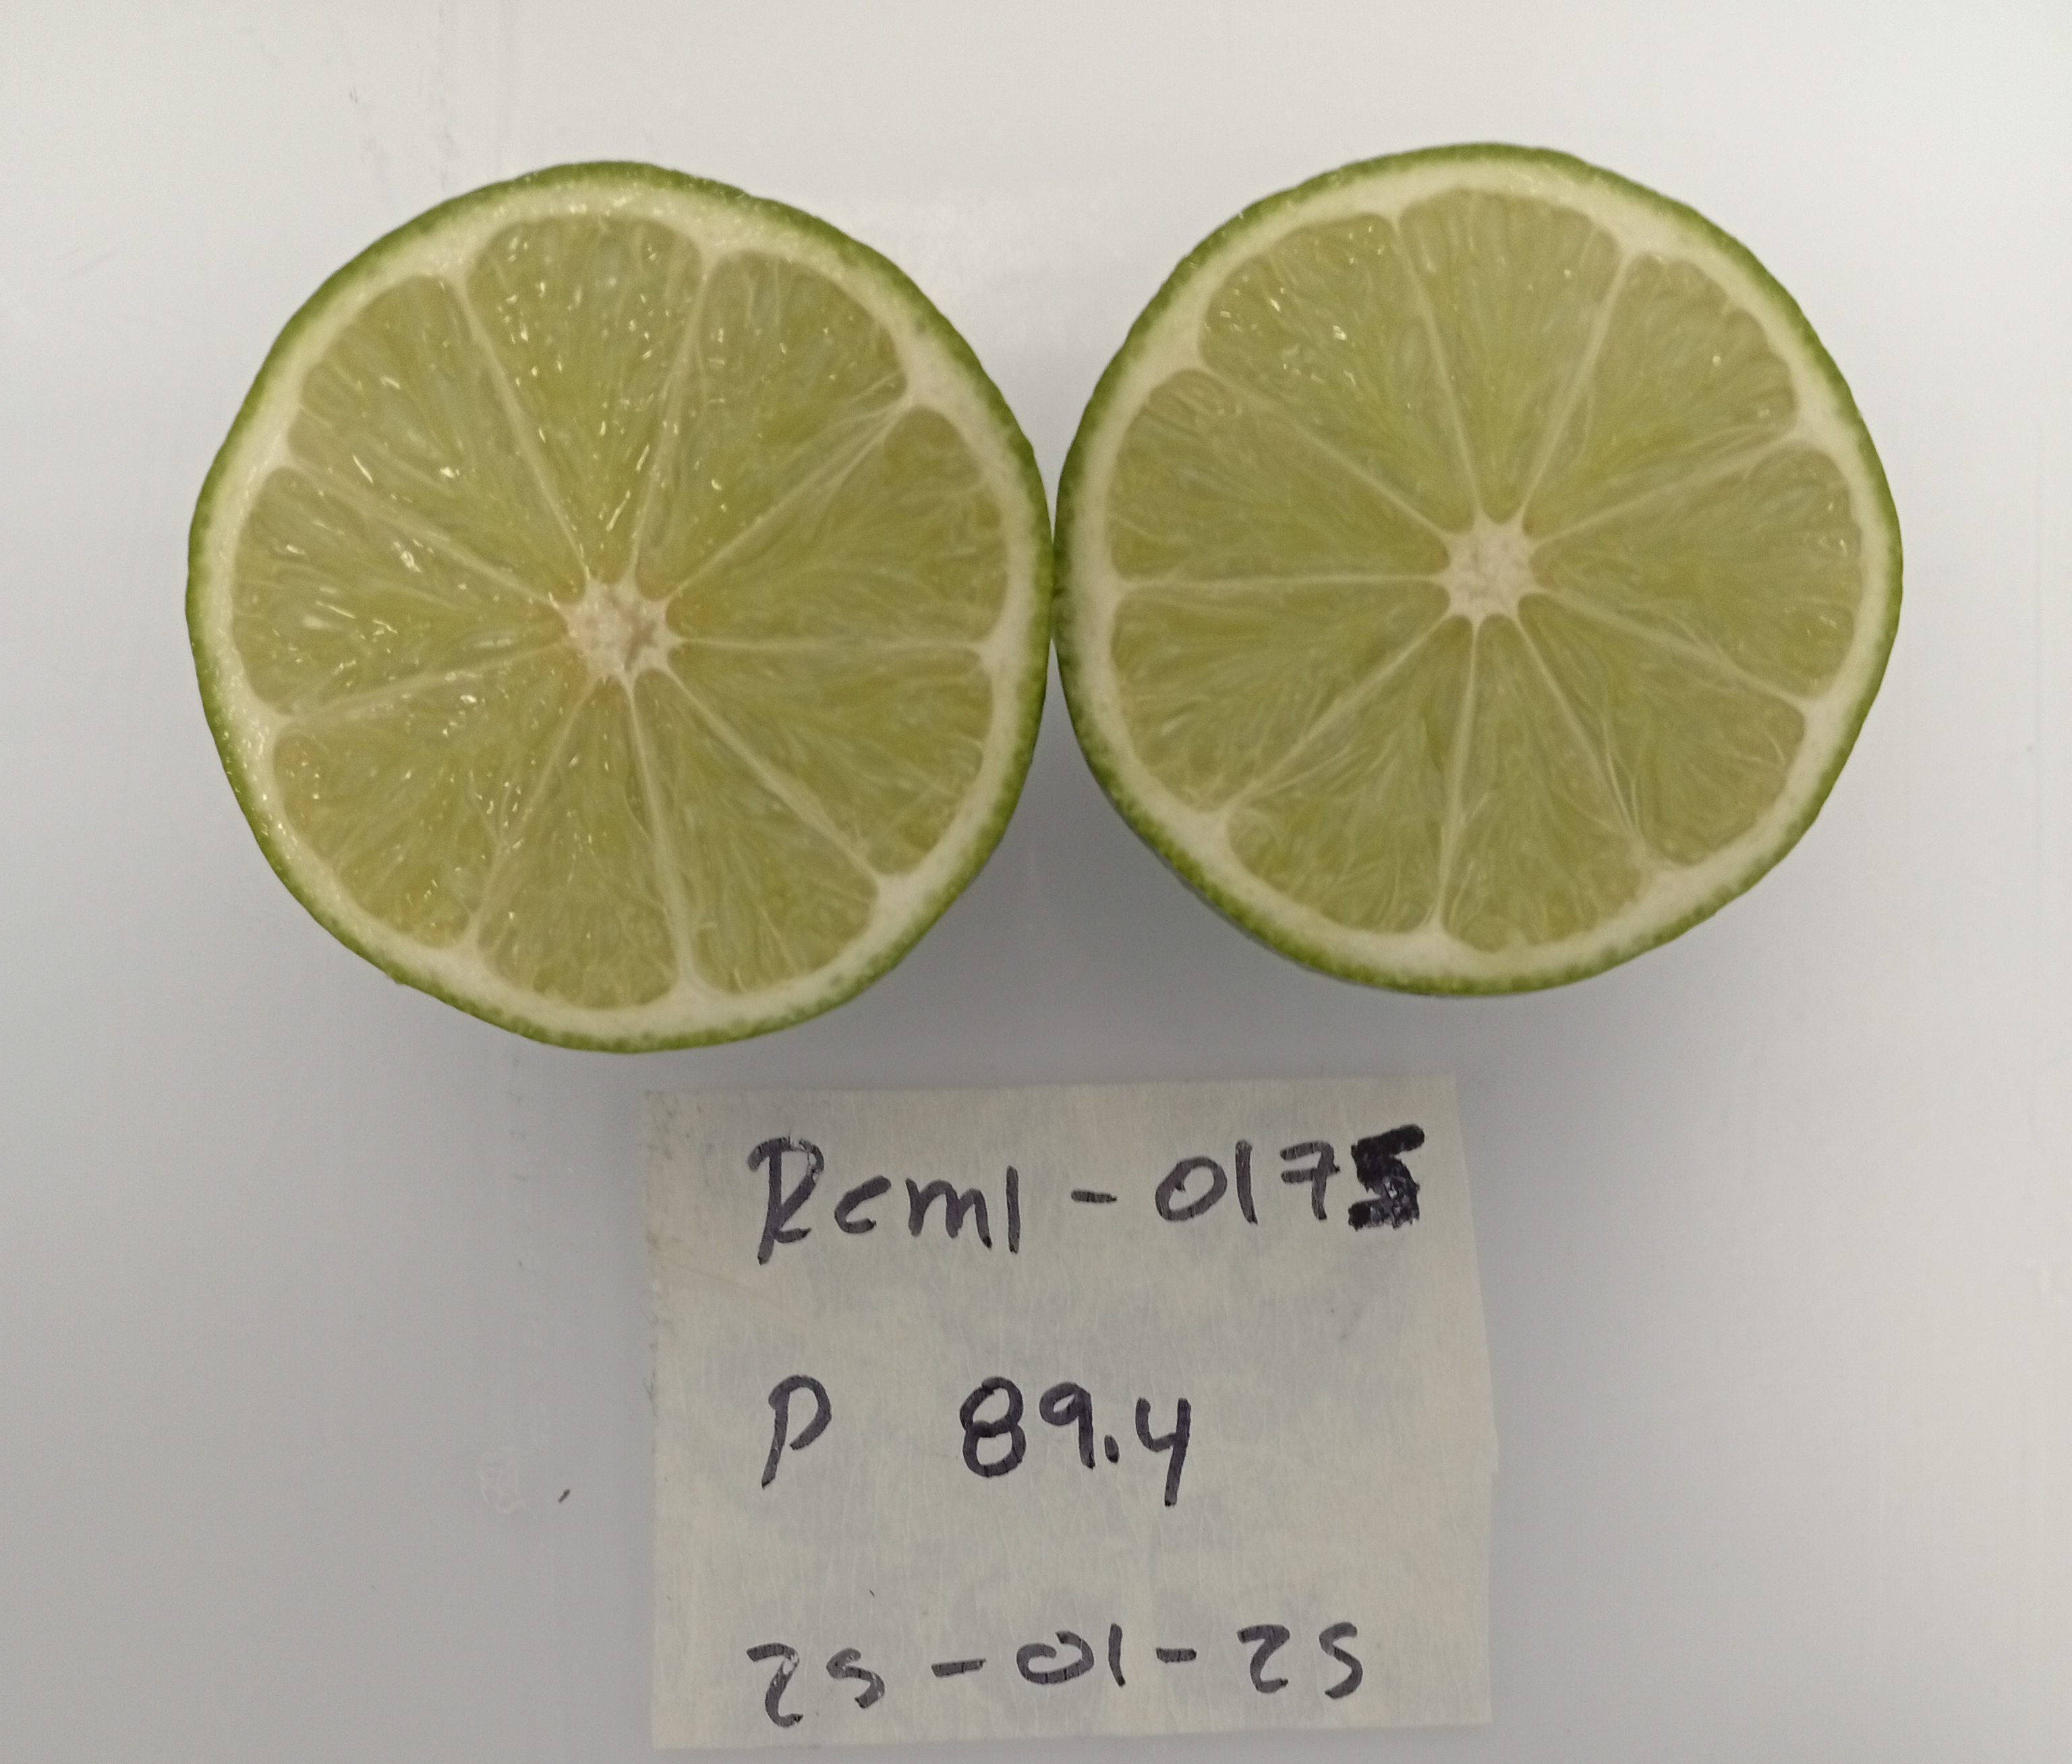 Rcml-0175
P 89.4
25-01-25